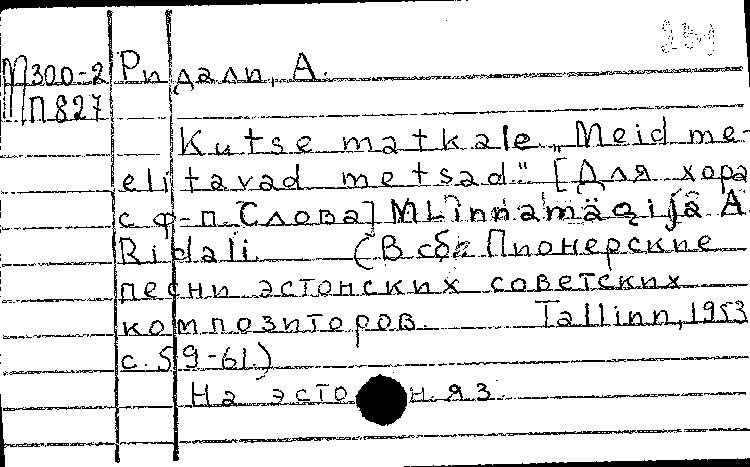 М300-2 Ридали, А.
П827
Kutse matkale „Meid me-
elitavad metsad" [Для хора
с ф-п. Слова] M. Linnamägi ja A.
Ridali. (В сб. Пионерские
песни эстонских советских
композиторов. Tallinn, 1953
с. 59-61.)
На эсто н. яз.